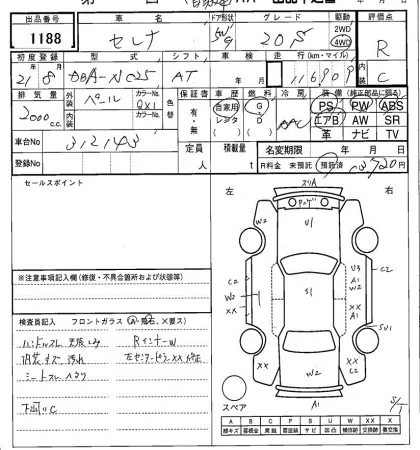 出品番号 車名 ドア形状 グレード 駆動 評価点
1188 セレナ 5W 9 20S 2WD 4WD R
初度登録 型式 シフト 車検 走行(km・マイル) 内装
21年8月 DBA-NC25 AT 年 月 116909 C
排気量 外装 パール カラーNo. QX1 色替 保証書 車歴 燃料 冷房 装備(純正部品に限る)
2000c.c. 内装 カラーNo. 有・無 自家用 レンタ G D AAC PS PW ABS
エアB AW SR
革 ナビ TV
車台No 312143 定員 積載量 名変期限 年 月 日
登録No 人 t R料金 未預託 預託済 13720円
セールスポイント
※注意事項記入欄(修復・不具合箇所および状態等)
検査員記入 フロントガラス(A・飛石、×要ス)
ハンドルスレ 天張しみ RインナーW
内装キズ 汚れ 左センターピラーXX修正
シートスレ ヘタリ
下回りC
左 右
スリA
W2 U1
C2 U3 C2
A1
W2
W2 S1
XX XX
A1
SU1
XX W2 XX
C2
スペア A1 S/1
A B C P S U W X XX
線キズ 要板金 腐蝕 要塗装 サビ 凹凸 補修跡 要交換